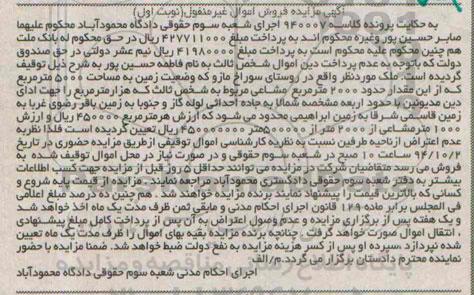 آگهی مزایده فروش اموال غیرمنقول(نوبت اول)
به حکایت پرونده کلاسه ۹۴۰۰۰۷ اجرای شعبه سوم حقوقی دادگاه محمودآباد محکوم علیهما
صابر حسین پور وغیره محکوم اند به پرداخت مبلغ ۴۲۷۷۱۱۰۰۰ ریال در حق محکوم له بانک ملت
هم چنین محکوم علیه محکوم است به پرداخت مبلغ ۴۱۹۸۰۰۰۰ ریال نیم عشر دولتی در حق صندوق
دولت که باتوجه به عدم پرداخت دین اموال شخص ثالث به نام فاطمه حسین پور به شرح ذیل توقیف
گردیده است. ملک موردنظر واقع در روستای سوراخ مازو که وضعیت زمین به مساحت ۵۰۰۰ مترمربع
که از این مقدار حدود ۲۰۰۰ مترمربع مشاعی مربوط به شخص ثالث که هزارمترمربع را جهت ادای
دین مدیونین با حدود اربعه مشخصه شمالا به جاده احداثی لوله گاز و جنوبا به زمین باقر رضوی غربا به
زمین قاسمی شرقا به زمین ابراهیمی محدود می شود که ارزش هرمترمربع ۴۵۰۰۰۰ ریال و ارزش
۱۰۰۰ مترمشاعی از ۲۰۰۰ متر از ۵۰۰۰ متر ۴۵۰۰۰۰۰۰۰ ریال تعیین گردیده است فلذا نظربه
عدم اعتراض ازناحیه طرفین نسبت به نظریه کارشناسی اموال توقیفی ازطریق مزایده حضوری در تاریخ
۹۴/۱۰/۲ ساعت ۱۰ صبح در شعبه سوم حقوقی و در صورت نیاز در محل اموال توقیف شده به
فروش می رسد متقاضیان شرکت در مزایده می توانند حداقل ۵ روز قبل از مزایده جهت کسب اطلاعات
بیشتر به دفتر شعبه سوم حقوقی دادگستری محمودآباد مراجعه نمایند. مزایده از قیمت پایه شروع و
کسانی که بالاترین قیمت را پیشنهاد نمایند برنده مزایده خواهند شد. هم چنین ده درصد مبلغ اعلامی
فی المجلس برابر ماده ۱۲۹ قانون اجرای احکام مدنی و مابقی ثمن ظرف مدت یک ماه اخذ خواهد شد
و یک هفته پس از برگزاری مزایده و عدم وصول اعتراض به آن پس از پرداخت کامل مبلغ پیشنهادی
، انتقال اموال صورت خواهد گرفت. چنانچه برنده مزایده بقیه بهای اموال را ظرف مدت یک ماه تعیین
شده نپردازد ،سپرده او پس از کسر هزینه مزایده به نفع دولت ضبط خواهد شد. ضمنا مزایده با حضور
نماینده محترم دادستان برگزار می گردد.م/الف
اجرای احکام مدنی شعبه سوم حقوقی دادگاه محمودآباد